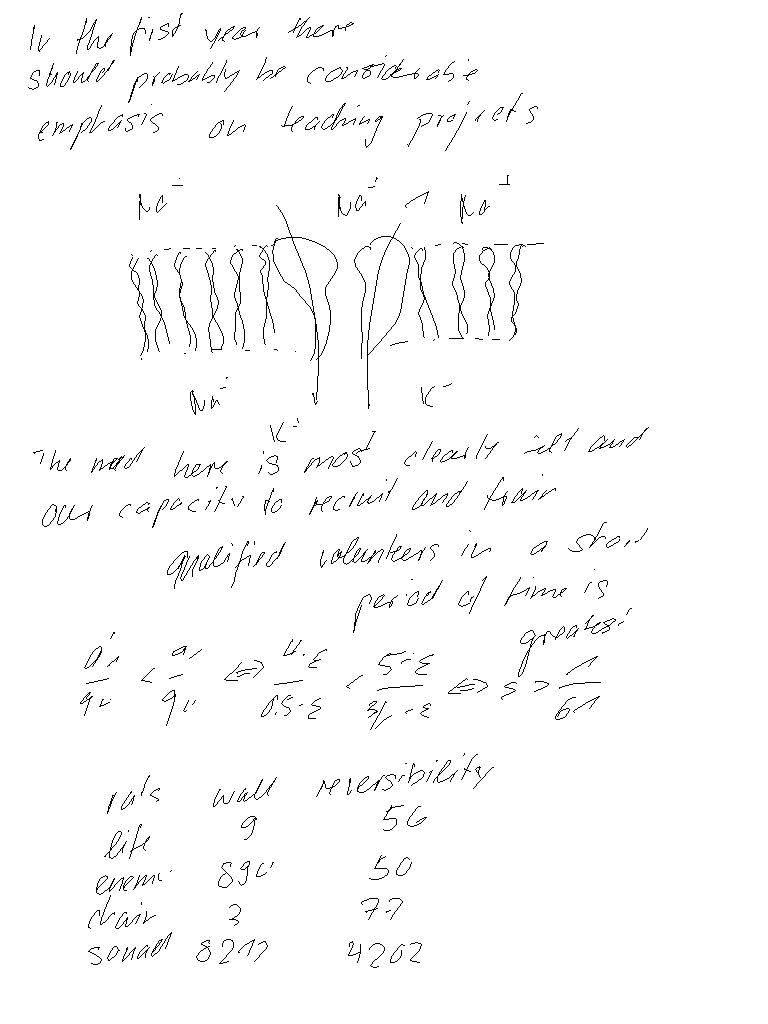 In the first year there
should probably be considerable
emphasis on teaching projects
Na⁺ Na⁺ Na⁺
Na⁺ K⁺ K⁺
The need here is most clearly felt and
our capacity to recruit and train
qualified volunteers in a short
period of time is
greatest
rats wall reversibility
life 9 56
890 50
chair 3 77
squad 8217 4202